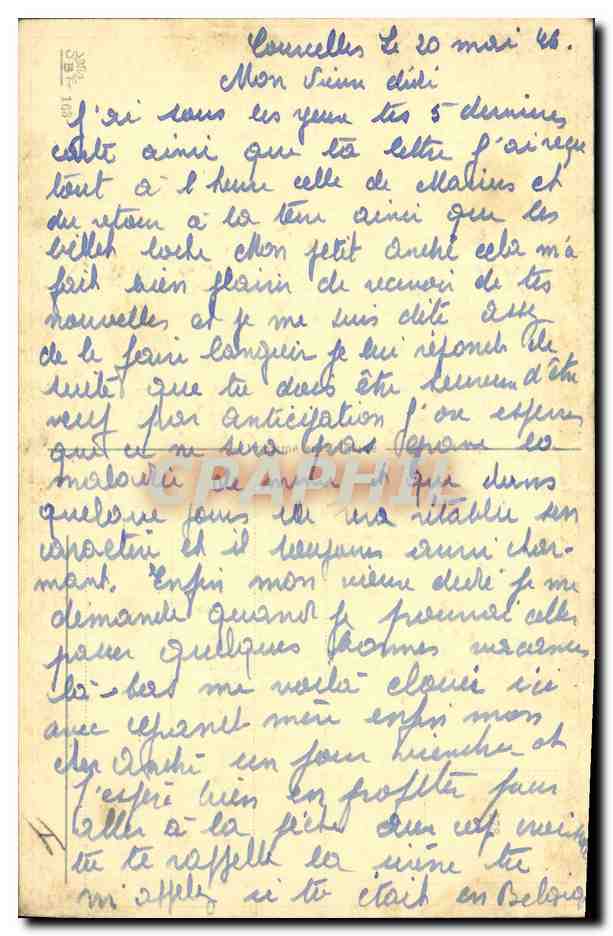 Courcelles Le 20 mai 46.
Mon vieux dédé
J'ai sous les yeux tes 5 dernieres
carte ainsi que ta lettre J'ai reçu
tout à l'heure celle de Marius et
du retour à la terre ainsi que les
billet Mon petit André cela m'a
fait bien plaisir de recevoir de tes
nouvelles et je me suis dité assez
de le faire languir je lui réponds de
suite que tu dois être heureux d'être
veuf par anticipation J'ose esperer
que ce ne sera pas grave la
maladie de et que dans
quelque jours elle va rétablie son
caractère et il toujours aussi char-
mant. Enfin mon vieux dédé je me
demande quand je pourrai aller
passer quelques bonnes vacances
là-bas me voilà cloué ici
avec grand mère enfin mon
cher André un jour viendra et
j'espère bien en profiter pour
aller à la pêche au cap
tu te rappelle la tu
m'appelez si tu était en Belgique
CRAPHIL